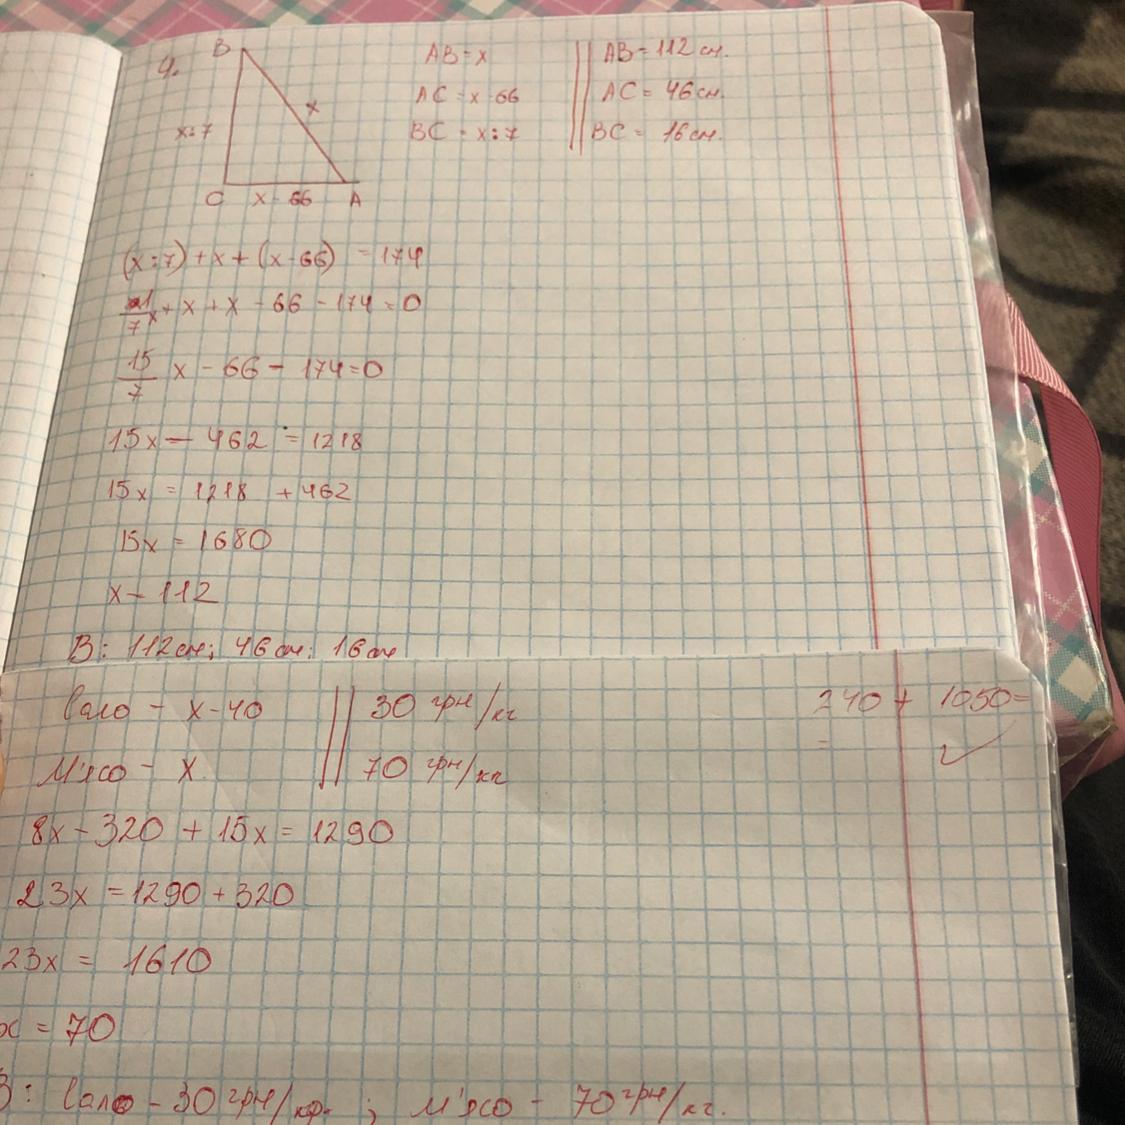 4.
B
x:7
x
C x - 66 A
AB = x
AC = x - 66
BC = x:7
AB = 112 см.
AC = 46 см.
BC = 16 см.
(x:7) + x + (x - 66) = 174
1/7 x + x + x - 66 - 174 = 0
15/7 x - 66 - 174 = 0
15x - 462 = 1218
15x = 1218 + 462
15x = 1680
x - 112
В: 112 см; 46 см; 16 см
Сало - x - 40 || 30 грн/кг
М'ясо - x || 70 грн/кг
240 + 1050 =
=
8x - 320 + 15x = 1290
23x = 1290 + 320
23x = 1610
x = 70
В: Сало - 30 грн/кг ; м'ясо - 70 грн/кг.